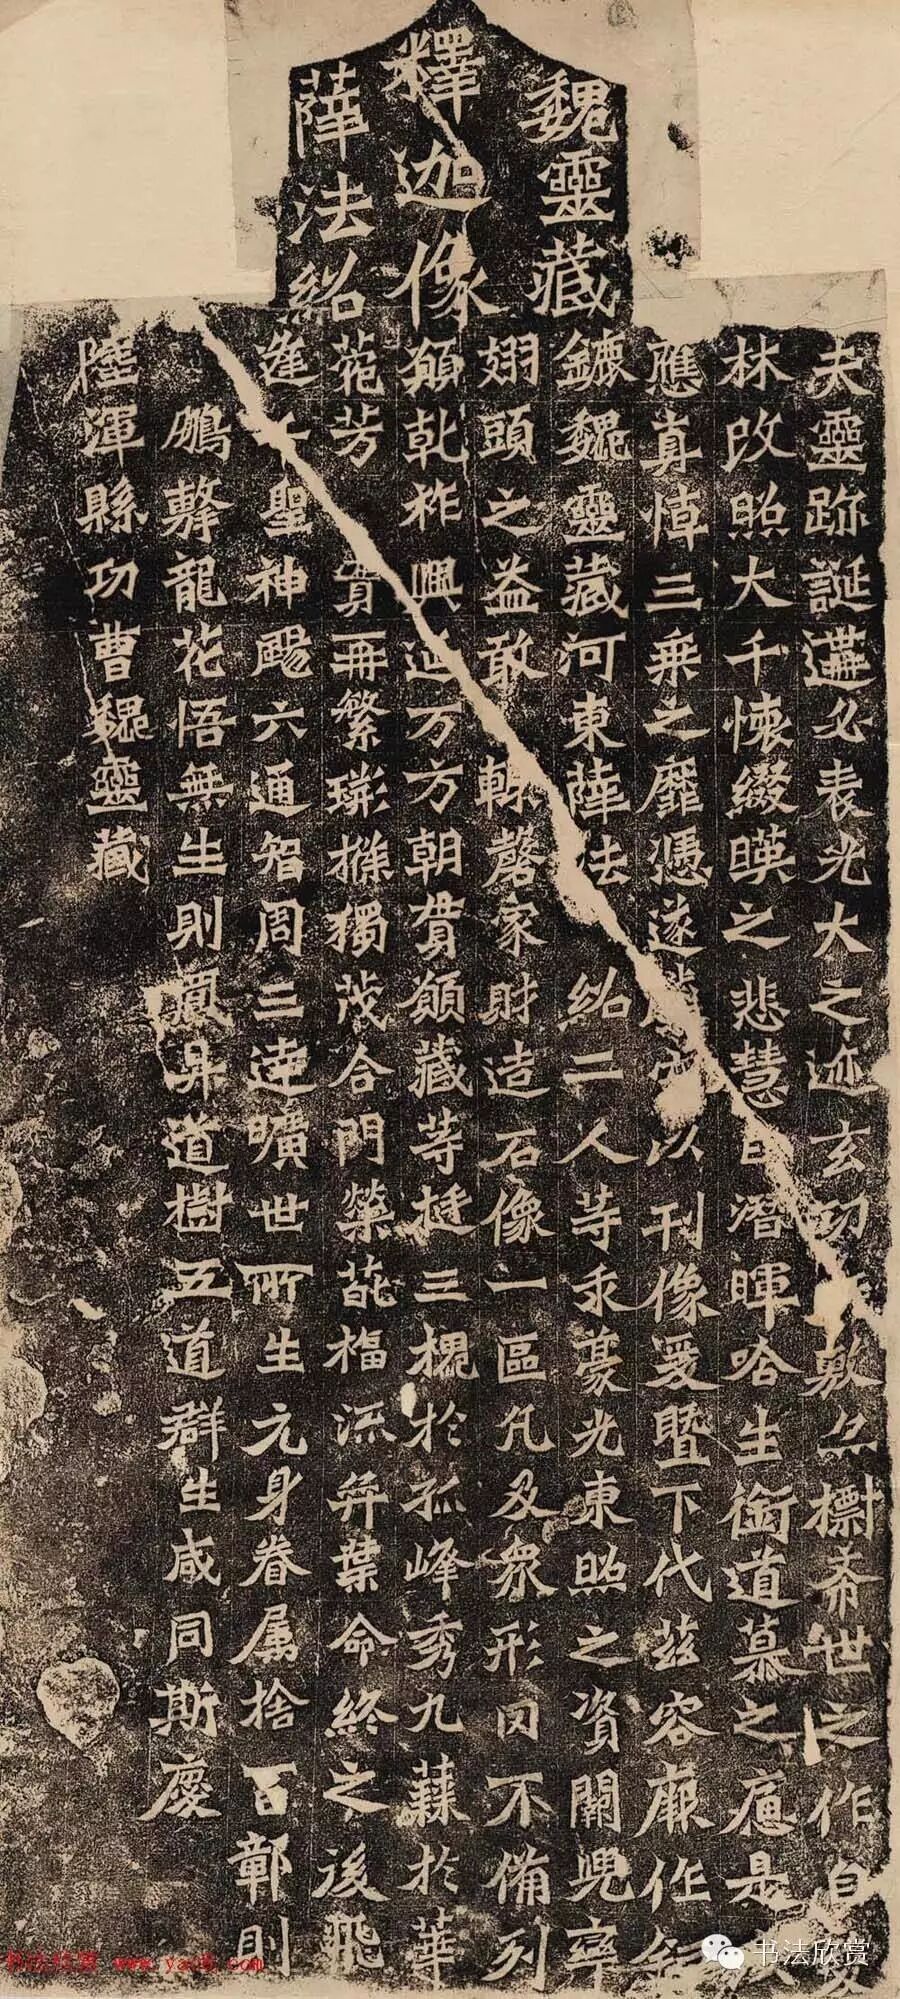 魏靈藏
釋迦像
薛法紹
夫靈跡誕遘必表光大之迹玄功敷亦標希世之作自
林改照大千懷綴暎之悲慧日潛暉唅生銜道慕之痛是
應真悼三乘之靡憑遂騰空以刊像爰暨下代茲容厥作鉅
鏕魏靈藏河東薛法紹二人等求豪光東照之資闕兜率
翅頭之益敢輒磬家財造石像一區凡及眾形罔不備列
願乾祚興延万方朝貫願藏等挺三槐於孤峰秀九蕀於華
菀芳實再繁荊條獨茂合門榮葩福流弈葉命終之後飛
逢千聖神颺六通智周三達曠世所生元身眷屬捨百鄣則
鵬擊龍花悟無生則鳳昇道樹五道群生咸同斯慶
陸渾縣功曹魏靈藏
书法欣赏 www.yac8.com
书法欣赏